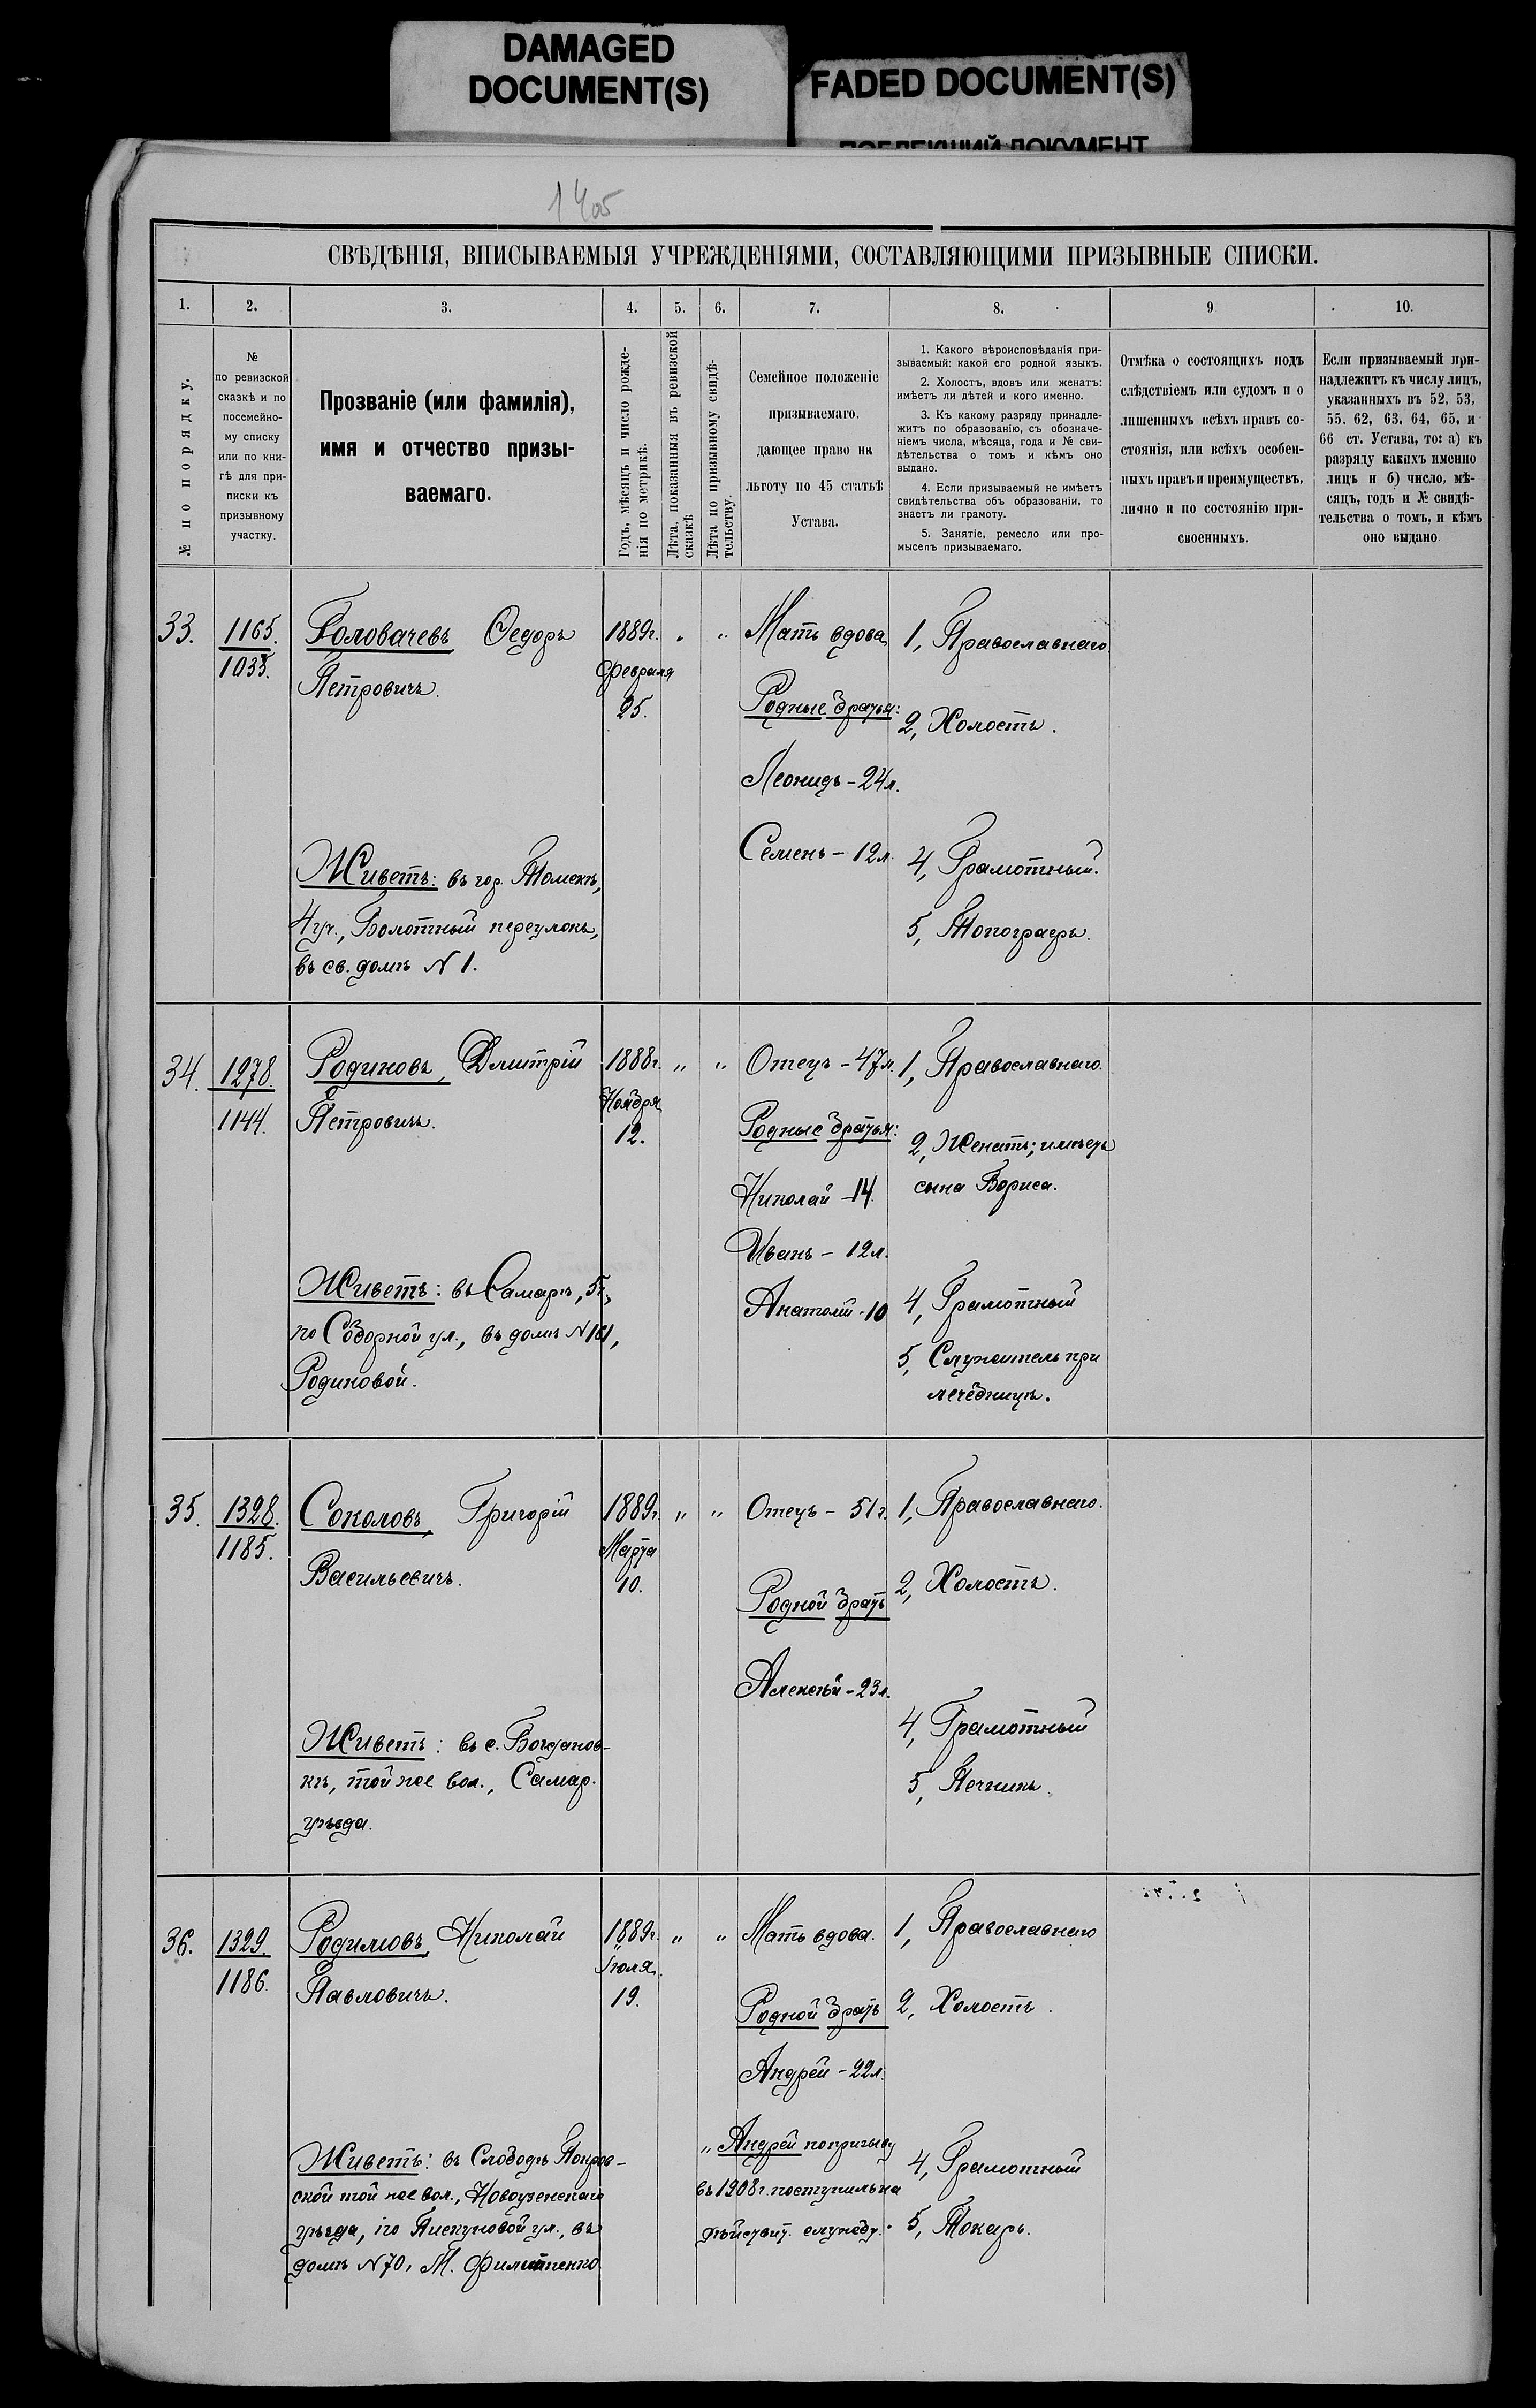 DAMAGED
DOCUMENT(S)
FADED DOCUMENT(S)
ПОБЛЕКШИЙ ДОКУМЕНТ
СВѢДѢНІЯ, ВПИСЫВАЕМЫЯ УЧРЕЖДЕНІЯМИ, СОСТАВЛЯЮЩИМИ ПРИЗЫВНЫЕ СПИСКИ.
1. 2. 3. 4. 5. 6. 7. 8. 9 10.
№ по порядку.
№
по ревизской
сказкѣ и по
посемейно-
му списку
или по кни-
гѣ для при-
писки къ
призывному
участку.
Прозваніе (или фамилія),
имя и отчество призы-
ваемаго.
Годъ, мѣсяцъ и число рожде-
нія по метрикѣ.
Лѣта, показанныя въ ревизской
сказкѣ
Лѣта по призывному свидѣ-
тельству.
Семейное положеніе
призываемаго,
дающее право на
льготу по 45 статьѣ
Устава.
1. Какого вѣроисповѣданія при-
зываемый: какой его родной языкъ.
2. Холостъ, вдовъ или женатъ:
имѣетъ ли дѣтей и кого именно.
3. Къ какому разряду принадле-
житъ по образованію, съ обозначе-
ніемъ числа, мѣсяца, года и № сви-
дѣтельства о томъ и кѣмъ оно
выдано.
4. Если призываемый не имѣетъ
свидѣтельства объ образованіи, то
знаетъ ли грамоту.
5. Занятіе, ремесло или про-
мыселъ призываемаго.
Отмѣка о состоящихъ подъ
слѣдствіемъ или судомъ и о
лишенныхъ всѣхъ правъ со-
стоянія, или всѣхъ особен-
ныхъ правъ и преимуществъ,
лично и по состоянію при-
своенныхъ.
Если призываемый при-
надлежитъ къ числу лицъ,
указанныхъ въ 52, 53,
55. 62, 63, 64, 65, и
66 ст. Устава, то: а) къ
разряду какихъ именно
лицъ и б) число, мѣ-
сяцъ, годъ и № свидѣ-
тельства о томъ, и кѣмъ
оно выдано
33.
1165.
1035.
Головачевъ Ѳедоръ
Петровичъ.
Живетъ: въ гор. Томскѣ,
4 уч., Болотный переулокъ,
въ св. домѣ N 1.
1889г.
Февраля
25.
Мать вдова
Родные братья:
Леонидъ - 24л.
Семенъ - 12л.
1, Православнаго
2, Холостъ.
4, Грамотный.
5, Топографъ.
34.
1278.
1144.
Родиновъ, Дмитрій
Петровичъ.
Живетъ: въ Самарѣ, 5ч,
по Соборной ул., въ домѣ N 161,
Родиновой.
1888г.
Ноября
12.
" "
Отецъ - 47л.
Родные братья:
Николай - 14.
Иванъ - 12л.
Анатолій - 10
1, Православнаго.
2, Женатъ; имѣетъ
сына Бориса.
4, Грамотный
5, Служитель при
лечебницѣ.
35.
1328.
1185.
Соколовъ, Григорій
Васильевичъ.
Живетъ: въ с. Богданов-
кѣ, той же вол., Самар.
уѣзда.
1889г.
Марта
10.
" "
Отецъ - 51г.
Родной братъ
Алексѣй - 23л.
1, Православнаго.
2, Холостъ.
4, Грамотный
5, Печникъ.
36.
1329.
1186.
Родимовъ, Николай
Павловичъ.
Живетъ: въ Слободѣ Покров-
ской той же вол., Новоузенскаго
уѣзда, по Пискуновой ул., въ
домѣ N 70, М. Филипенко
1889г.
Іюля
19.
" "
Мать вдова.
Родной братъ
Андрей - 22л.
" Андрей по призыву
въ 1908г. поступилъ на
дѣйствит. службу.
1, Православнаго
2, Холостъ.
4, Грамотный
5, Токарь.